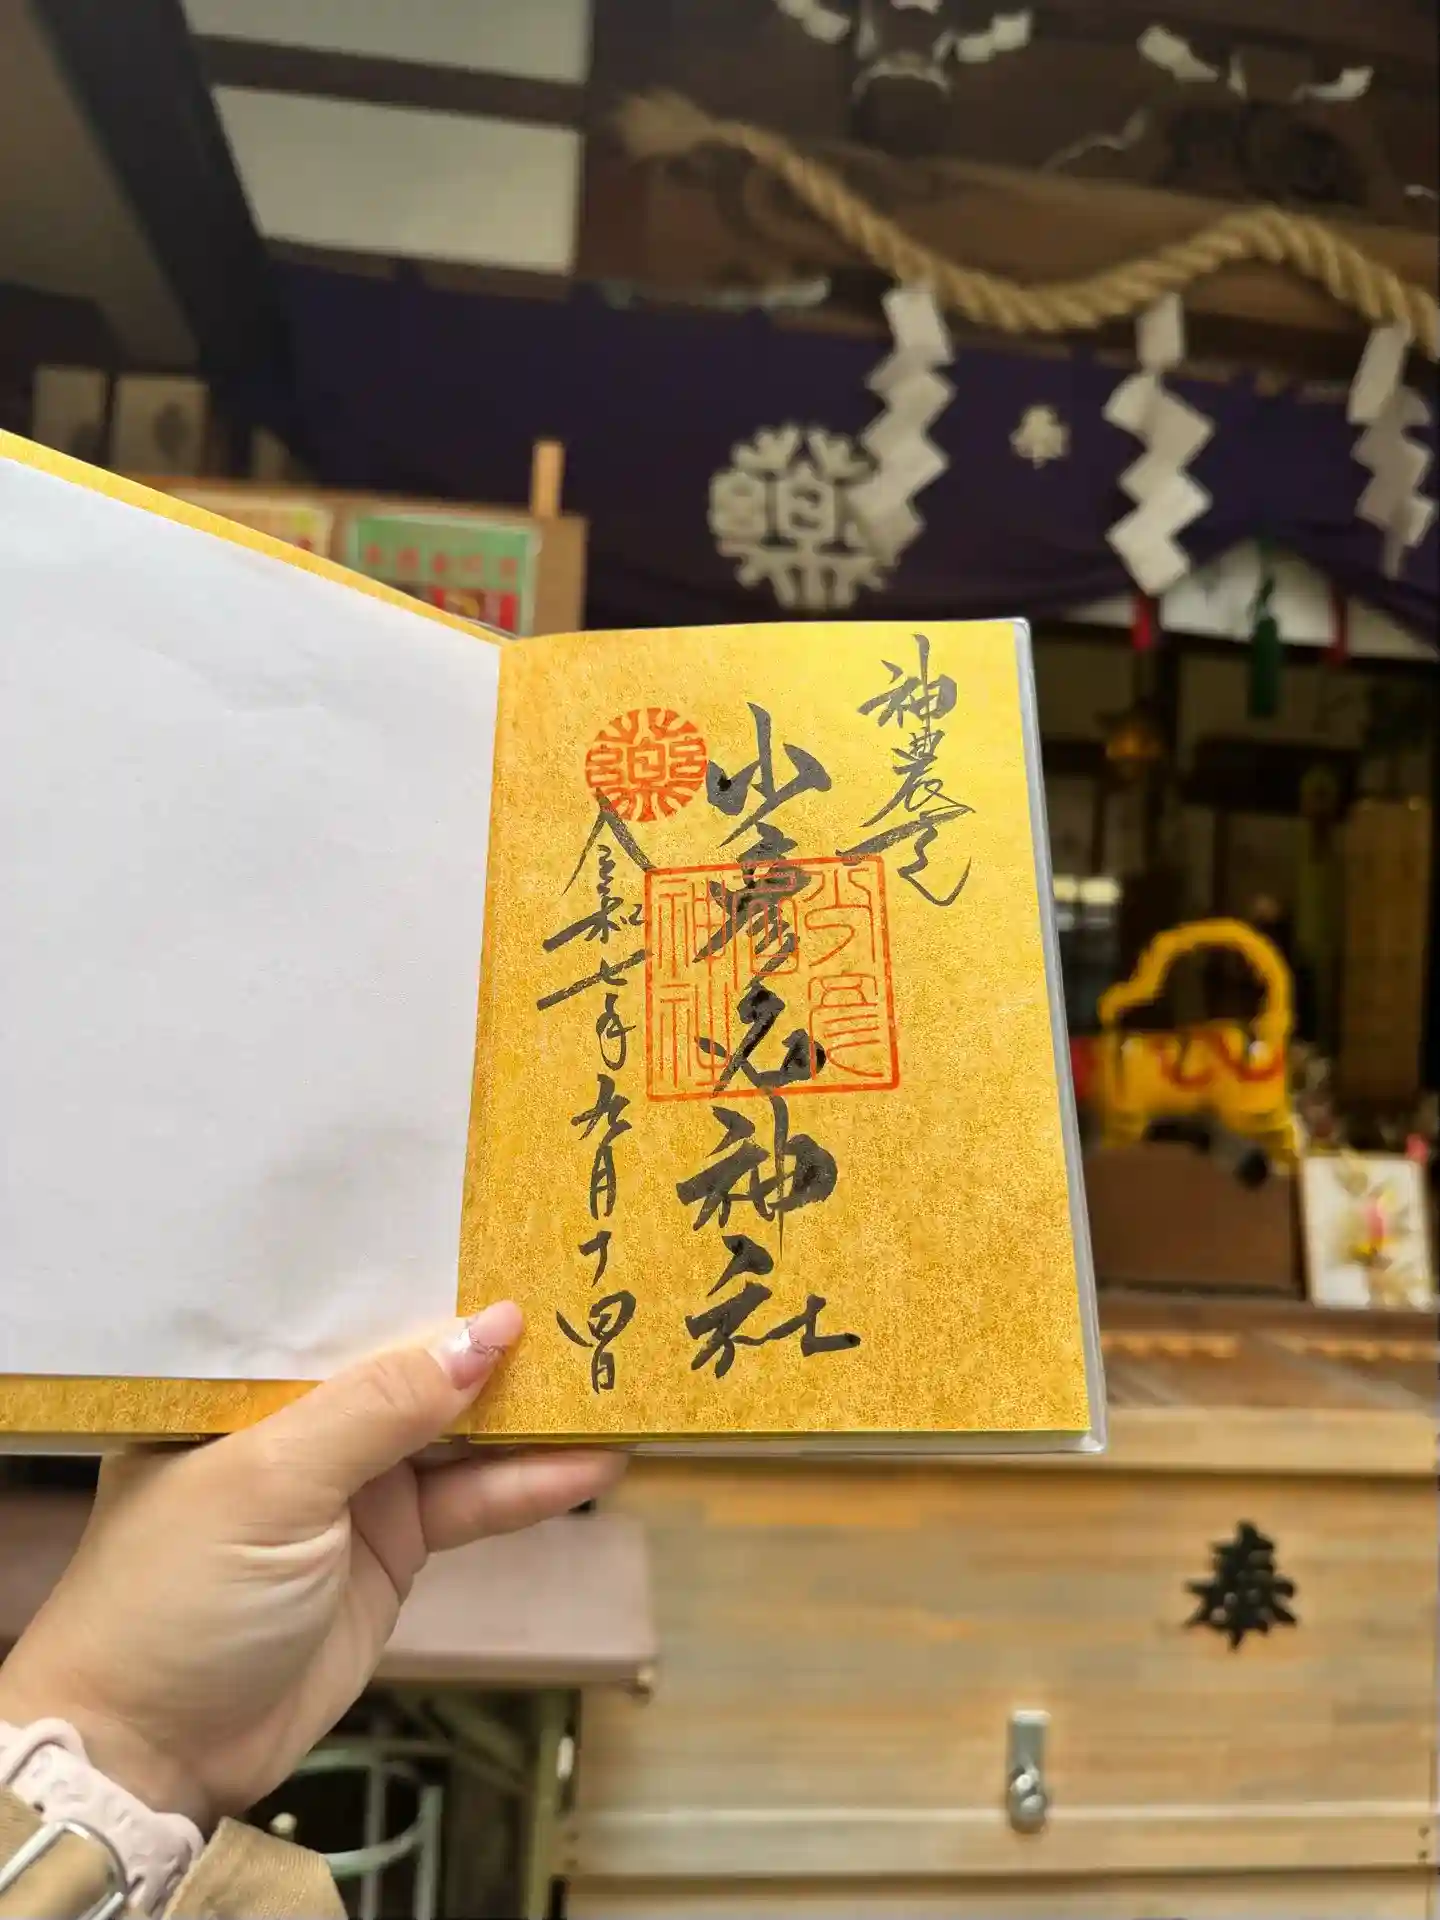 神農さん
少彦名神社
令和七年九月十四日
薬
少彦名神社
薬
奉